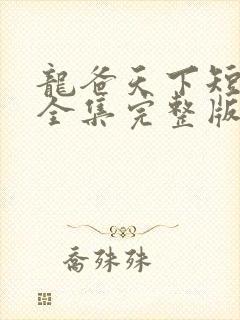 龍爸天下短
全集完整版
喬殊殊